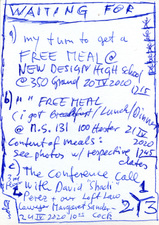 WAITING FOR
a) my turn to get a
FREE MEAL @
NEW DESIGN High school
@ 350 Grand 20 IV 2020
1215
b) " " FREE MEAL
(i got Breakfast/Lunch/Dinner
@ M.S. 131 100 Hester 21 IV
2020
Content of meals: 1245
see photos w/ respecting dates
c) The Conference Call
with David "Shadi"
Perez + our Left Law
Lawyer Margaret Sander -
24 IV 2020 10
1
2/3